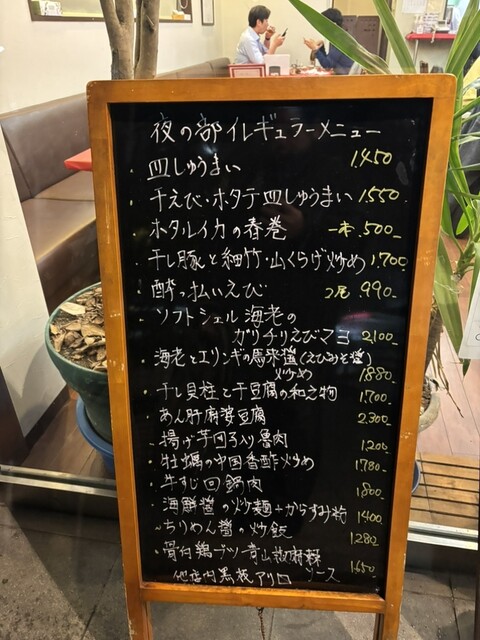 夜の部イレギュラーメニュー
・皿しゅうまい 1.450
・干えび・ホタテ皿しゅうまい 1.550.
・ホタルイカの春巻 一本.500-
・干し豚と細竹・山くらげ炒め 1.700
・酔っ払いえび 2尾.990-
・ソフトシェル海老の
ガリチリえびマヨ 2100-
・海老とエリンギの馬来醬(えびみそ醬)
炒め 1.880
・干し貝柱と干豆腐の和え物 1.700.
・あん肝麻婆豆腐 2.300
・揚げ芋団子入り魯肉 1.200
・牡蠣の中国香酢炒め 1780-
・牛すじ回鍋肉 1.800
・海鮮醬の炒麺+からすみ粉 1400
ちりめん醬の炒飯 1280-
・骨付鶏ブツ 青山椒麻辣
ソース 1.650